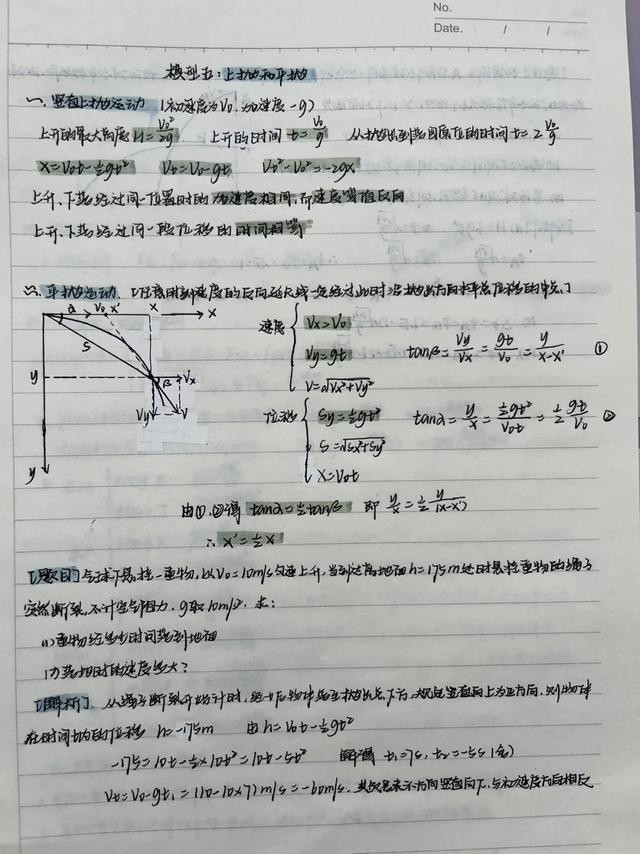 No.
Date. / /
模型五:上抛和平抛
一、竖直上抛运动 (初速度为V₀,加速度-g)
上升的最大高度H=V₀²/2g 上升的时间t=V₀/g 从抛出到落回原位的时间t=2V₀/g
X=V₀t-½gt² Vt=V₀-gt Vt²-V₀²=-2gx
上升、下落经过同一位置时的加速度相同,而速度等值反向
上升、下落经过同一段位移的时间相等
二、平抛运动 [任意时刻速度的反向延长线一定经过此时沿抛出方向水平总位移的中点]
α V₀ X' X X
速度 Vx=V₀
S
Vy=gt tanβ=Vy/Vx=gt/V₀=y/(x-x') ①
y β Vx
V=√(Vx²+Vy²)
Vy V
位移 Sy=½gt² tanα=y/x=½gt²/V₀t=½gt/V₀ ②
S=√(Sx²+Sy²)
y
X=V₀t
由①、②得 tanα=½tanβ 即 y/x=½y/(x-x')
∴X'=½X
[题目]气球下悬挂一重物,以V₀=10m/s匀速上升,当到达离地面h=175m处时悬挂重物的绳子
突然断裂,不计空气阻力,g取10m/s²,求:
(1)重物经多少时间落到地面
(2)落地时的速度多大?
[解析] 从绳子断裂开始计时,经t后物体落至抛出点下方,规定竖直向上为正方向,则物体
在时间t内的位移 h=-175m 由h=V₀t-½gt²
-175=10t-½×10t²=10t-5t² 解得 t₁=7s, t₂=-5s(舍)
Vt=V₀-gt₁=(10-10×7)m/s=-60m/s,其负号表示方向竖直向下,与初速度方向相反